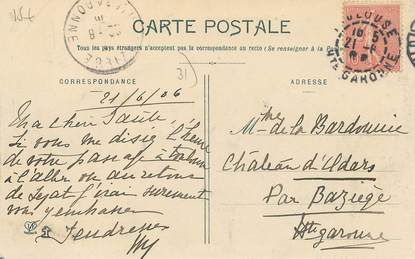 CARTE POSTALE
Tous les pays étrangers n'acceptent pas la correspondance au recto (Se renseigner à la Poste)
CORRESPONDANCE
ADRESSE
31
21/6/06
Ma chère Tante,
Si vous me disiez l'heure
de votre passage à
à l'aller ou au retour
de j'irai surement
vous y embrasser
Tendresses
Mme de la Bardonnie
Château d'
Par Baziège
Hte Garonne
TOULOUSE
Hte GARONNE